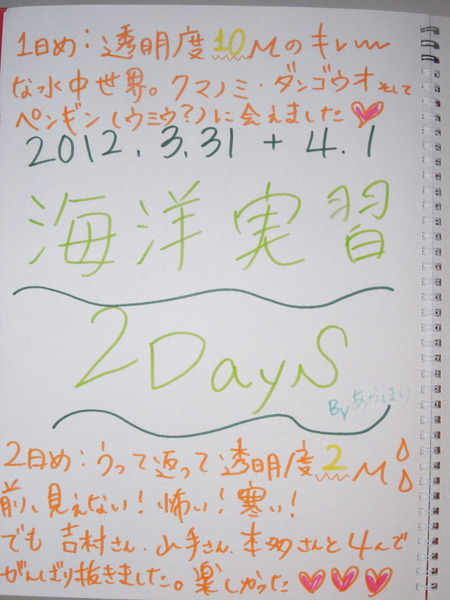 1日め:透明度10Mのキレ〜
な水中世界。クマノミ・ダンゴウオそして
ペンギン(ウミウ?)に会えました♡
2012.3.31+4.1
海洋実習
2DayS
By
2日め:うって返って透明度2M
前、見えない!怖い!寒い!
でも吉村さん、山手さん、本多さんと4人で
がんばり抜きました。楽しかった♡♡♡